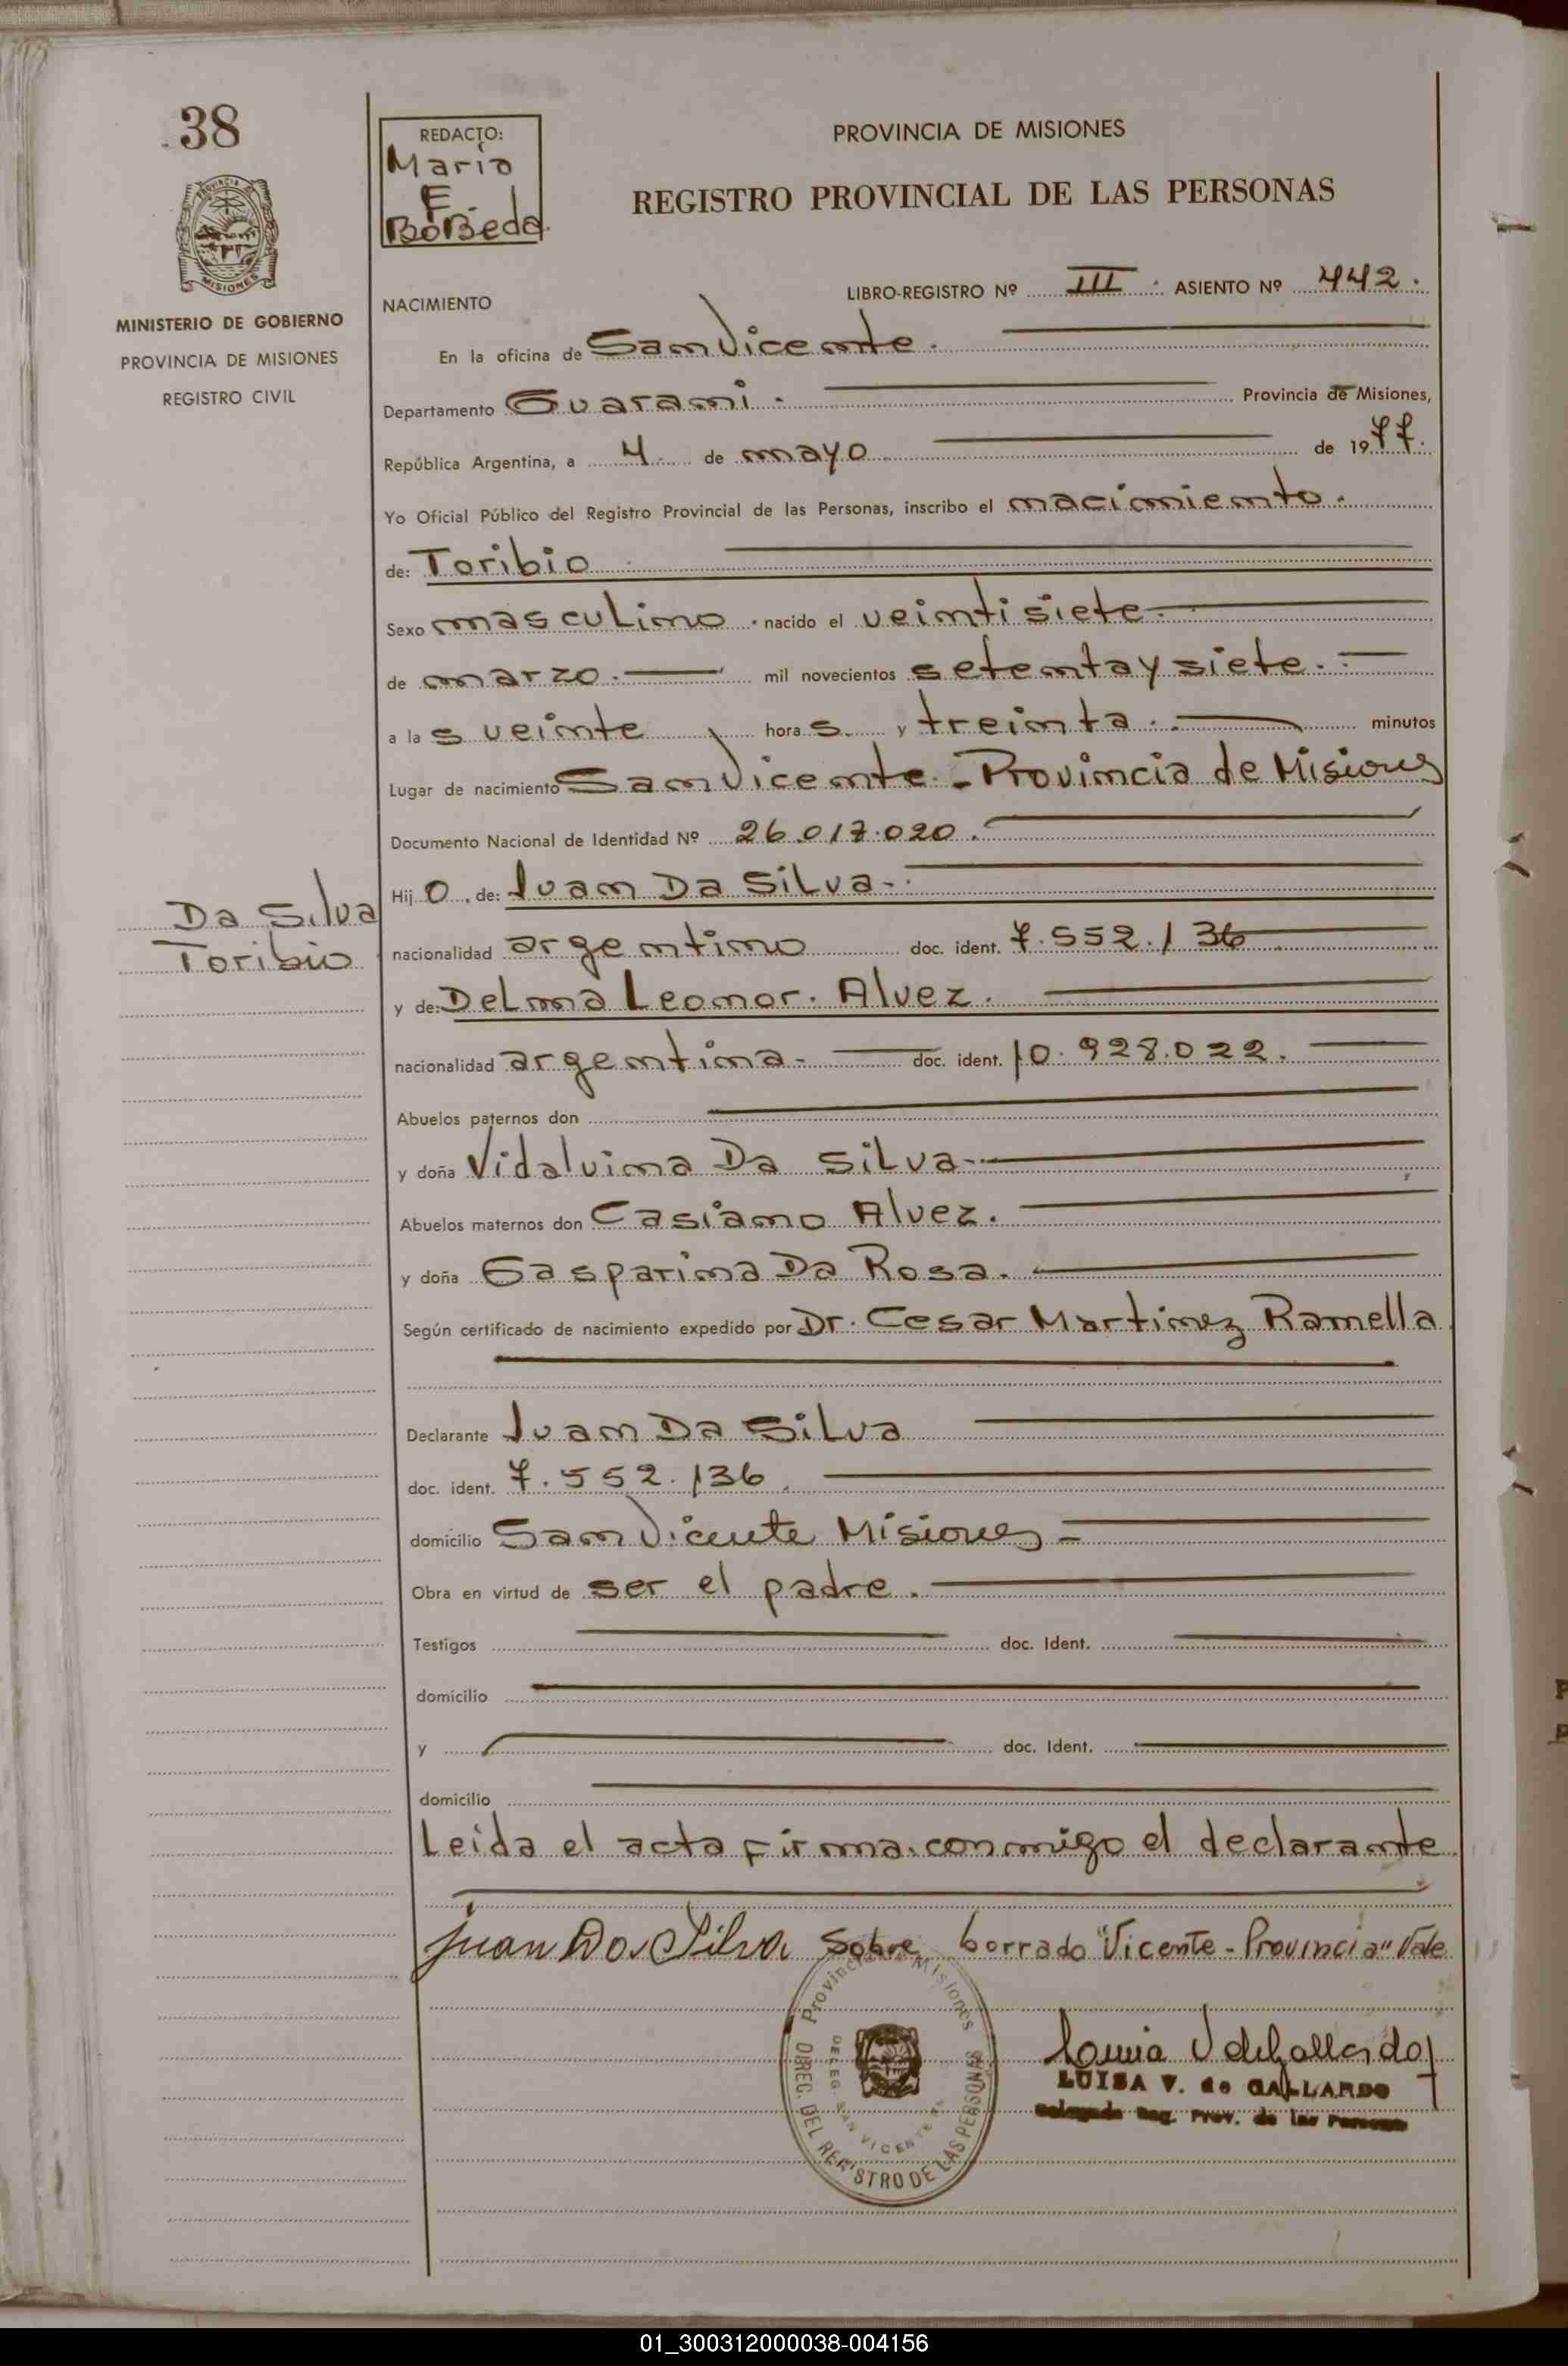 38
PROVINCIA DE
MISIONES
MINISTERIO DE GOBIERNO
PROVINCIA DE MISIONES
REGISTRO CIVIL
REDACTO:
Mario
E.
BoBeda
PROVINCIA DE MISIONES
REGISTRO PROVINCIAL DE LAS PERSONAS
NACIMIENTO LIBRO-REGISTRO Nº III. ASIENTO Nº 442.
En la oficina de San Vicente.
Departamento Guarani. Provincia de Misiones,
República Argentina, a 4 de mayo de 1977.
Yo Oficial Público del Registro Provincial de las Personas, inscribo el nacimiento.
de: Toribio
Sexo masculino. nacido el veintisiete
de marzo. mil novecientos setenta y siete.
a las veinte horas y treinta. minutos
Lugar de nacimiento San Vicente - Provincia de Misiones
Documento Nacional de Identidad Nº 26.017.020.
Hijo, de: Juan Da Silva-
Da Silva
Toribio
nacionalidad argentino doc. ident. 7.552.136
y de: Delma Leonor. Alvez.
nacionalidad argentina- doc. ident. 10.928.022.
Abuelos paternos don
y doña Vidalvina Da Silva-
Abuelos maternos don Casiano Alvez.
y doña Gasparina Da Rosa.
Según certificado de nacimiento expedido por Dr. Cesar Martinez Ramella
Declarante Juan Da Silva
doc. ident. 7.552.136.
domicilio San Vicente Misiones -
Obra en virtud de ser el padre.
Testigos doc. Ident.
domicilio
y doc. Ident.
domicilio
Leida el acta firma conmigo el declarante
juan Da Silva Sobre borrado "Vicente - Provincia" Vale
Provincia de Misiones
DIREC. DEL REGISTRO DE LAS PERSONAS
DELEG. SAN VICENTE
Luisa V de Gallardo
LUISA V. de GALLARDO
Delegada Reg. Prov. de las Personas
01_300312000038-004156